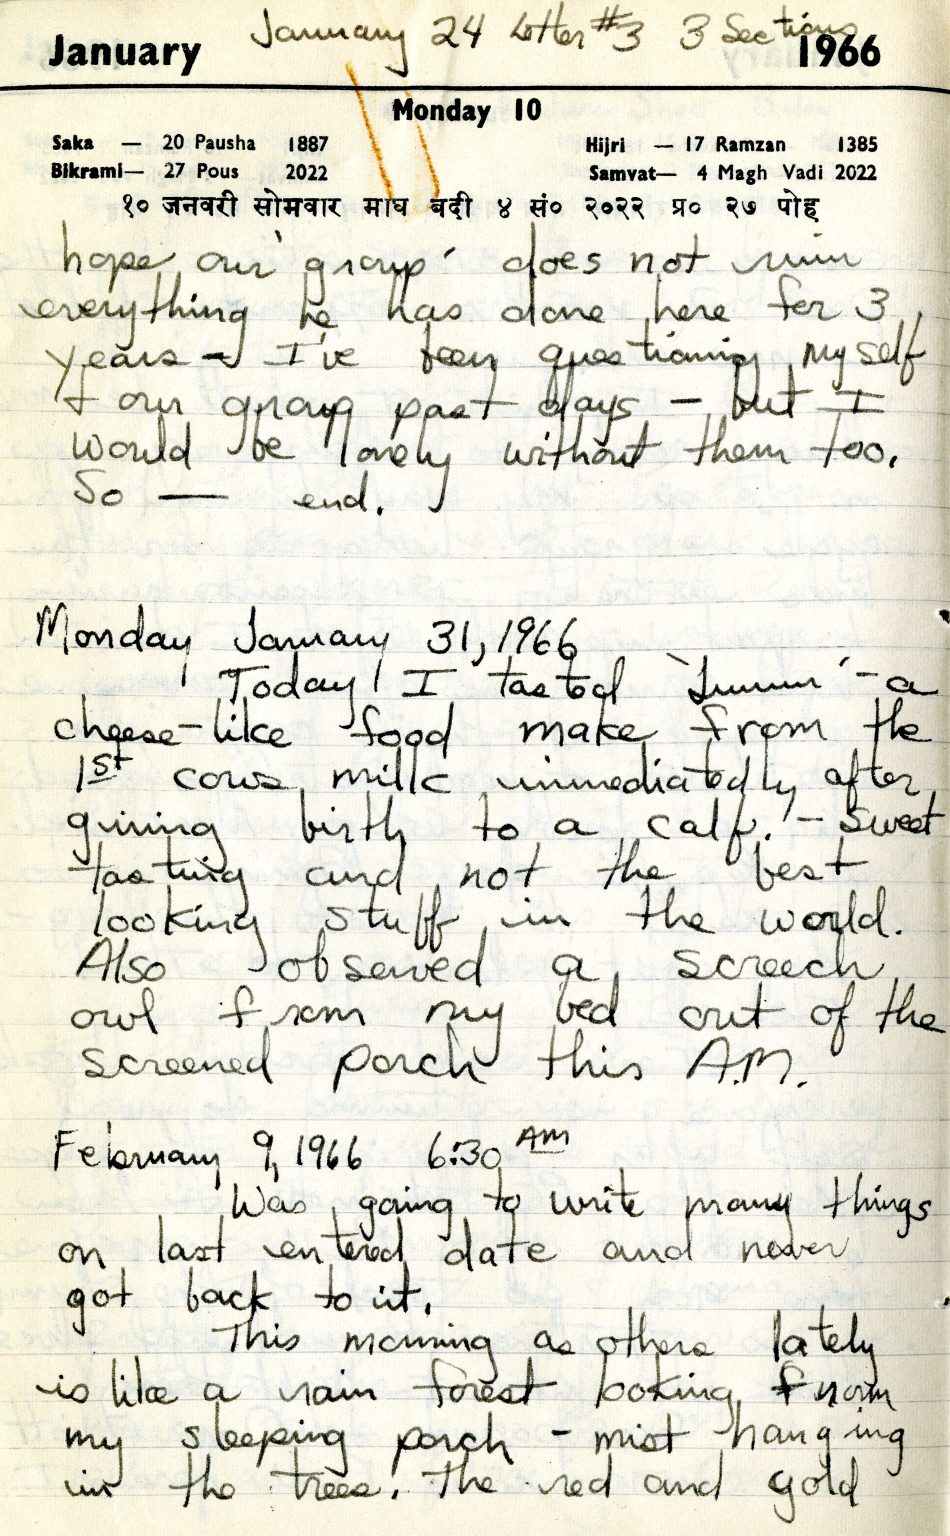 January 24 Letter #3 3 Sections
January 1966
Monday 10
Saka — 20 Pausha 1887 Hijri — 17 Ramzan 1385
Bikrami— 27 Pous 2022 Samvat— 4 Magh Vadi 2022
१० जनवरी सोमवार माघ बदी ४ सं० २०२२ प्र० २७ पोह
hope our 'group' does not ruin
everything he has done here for 3
years – I've been questioning myself
+ our group past days – but I
would be lonely without them too.
So — end.
Monday January 31, 1966
Today I tasted - a
cheese-like food make from the
1st cows milk immediatedly after
giving birth to a calf! - Sweet
tasting and not the best
looking stuff in the world.
Also observed a screech
owl from my bed out of the
screened porch this A.M.
February 9, 1966 6:30 AM
Was going to write many things
on last entered date and never
got back to it.
This morning as others lately
is like a rain forest looking from
my sleeping porch - mist hanging
in the trees. The red and gold